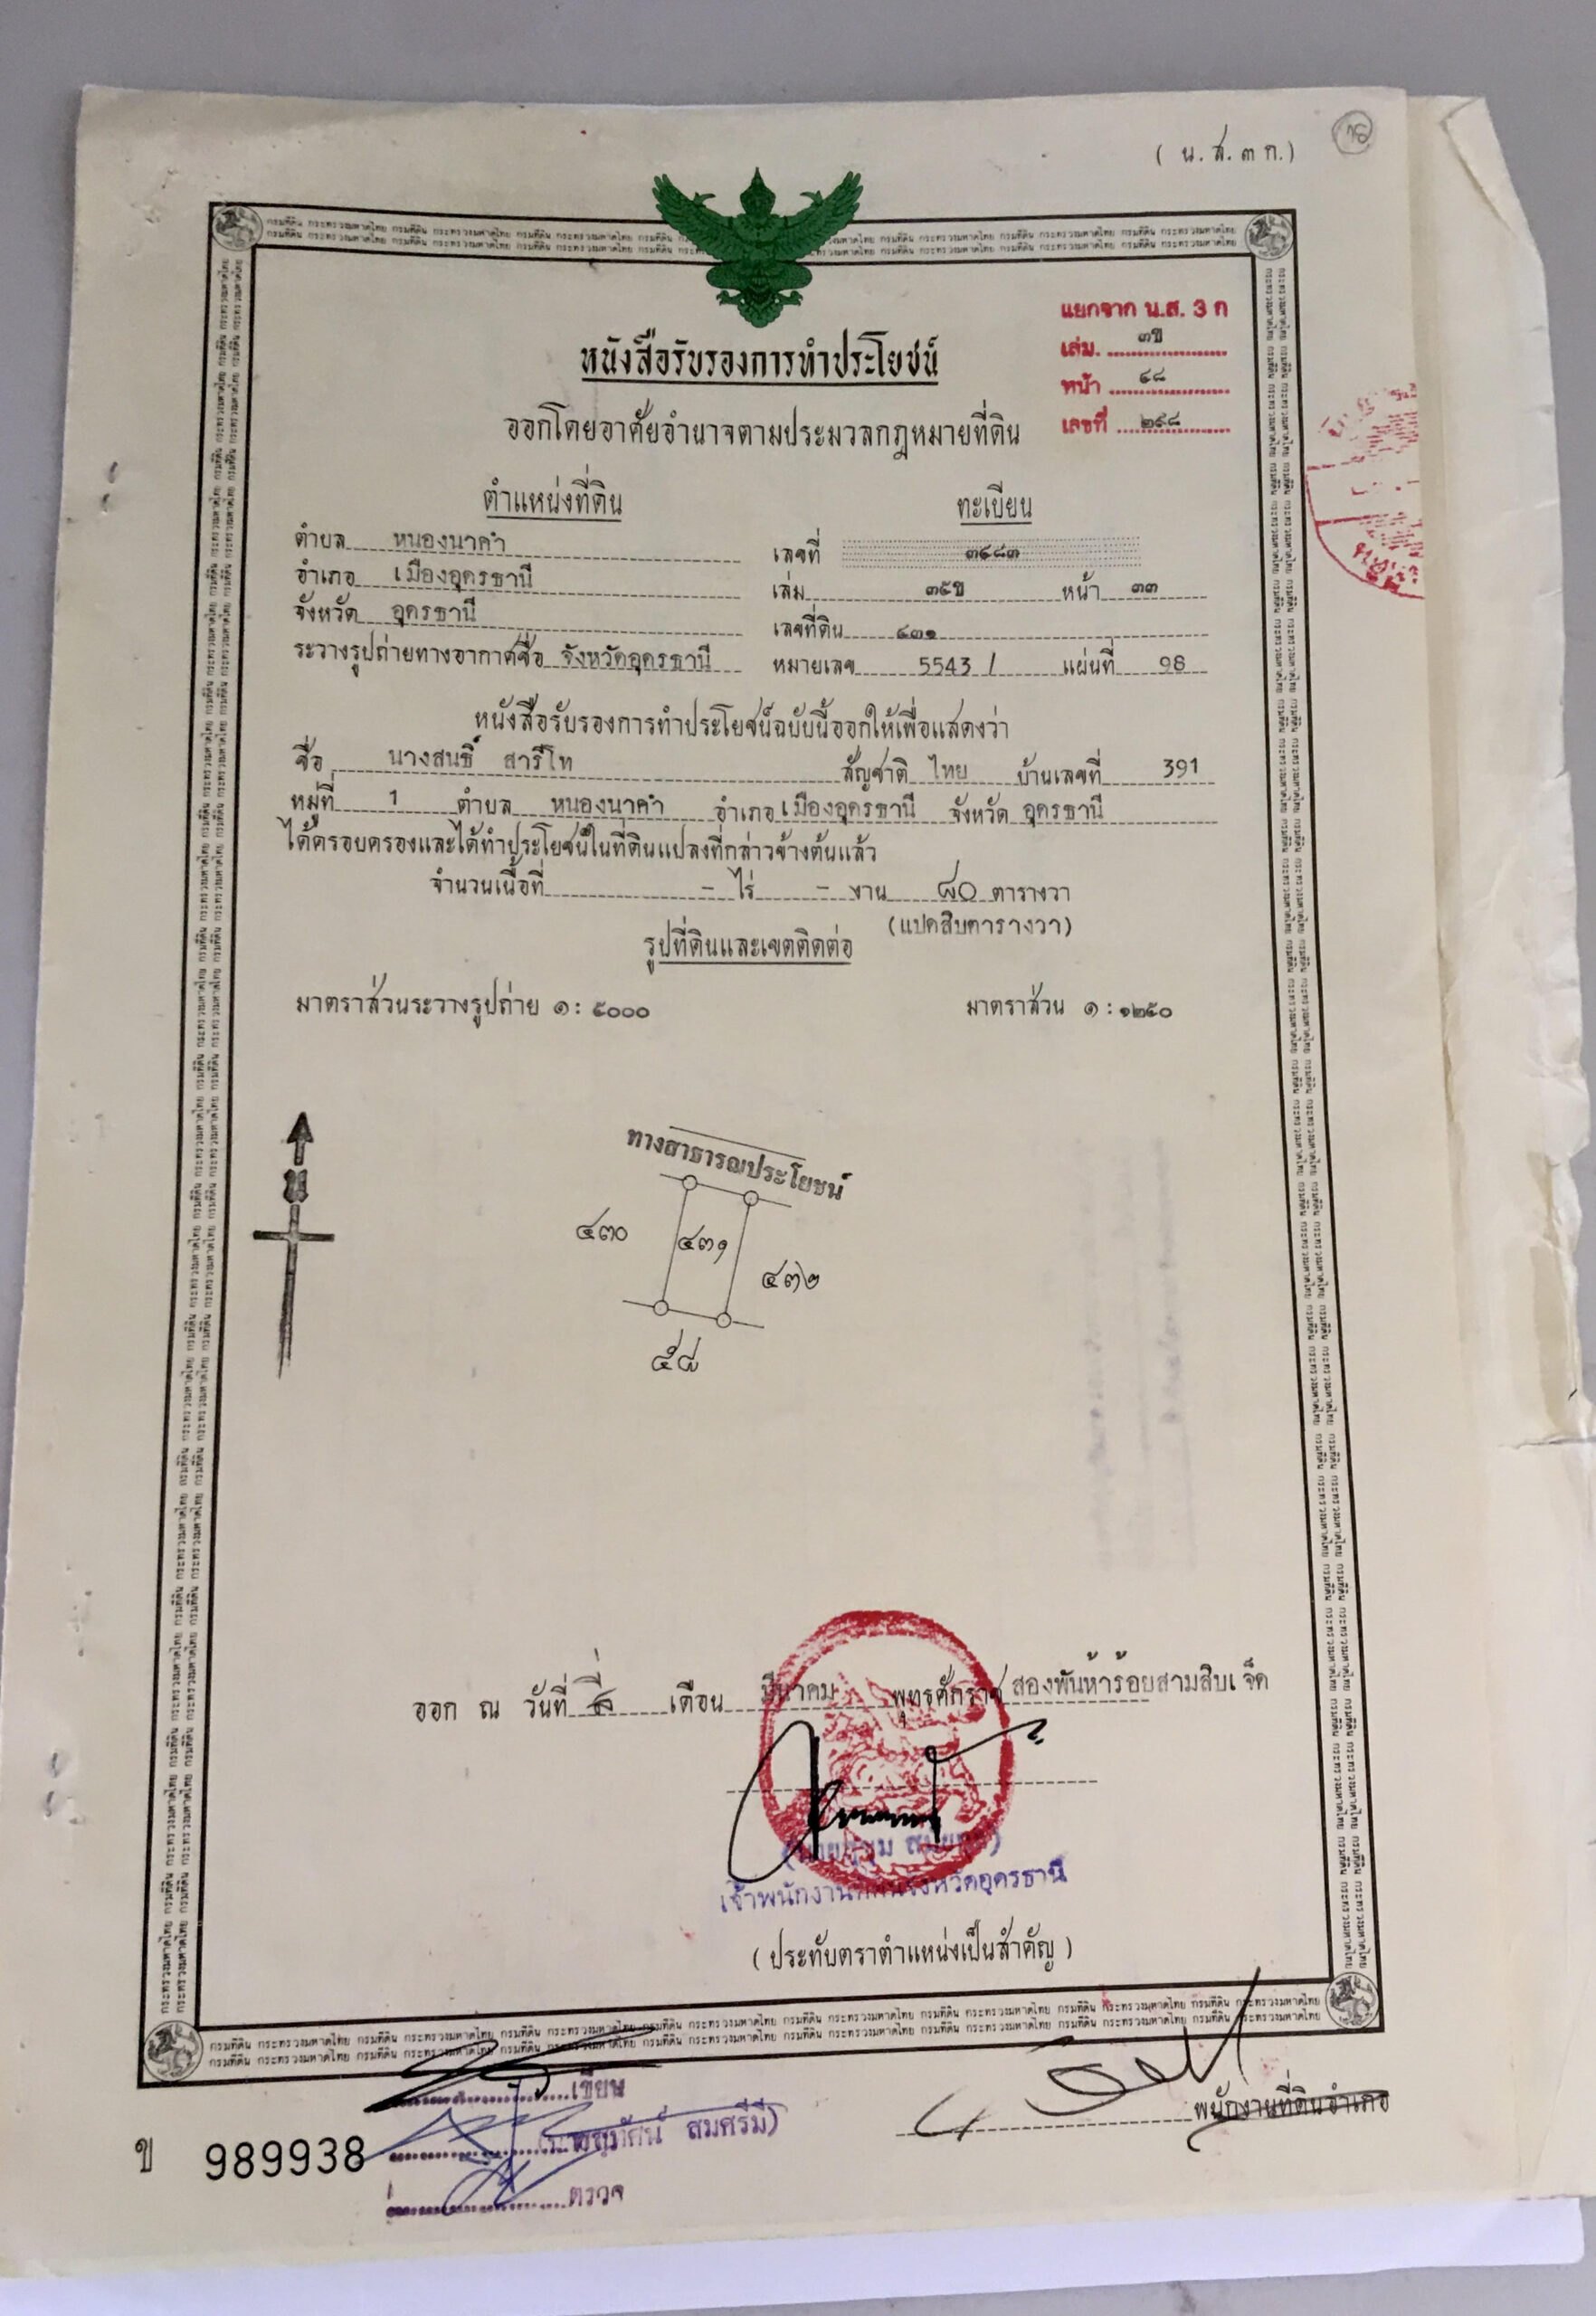 ( น.ส.๓ ก.)
แยกจาก น.ส. 3 ก
เล่ม. ๓ข
หน้า ๔๘
เลขที่ ๒๙๘
หนังสือรับรองการทำประโยชน์
ออกโดยอาศัยอำนาจตามประมวลกฎหมายที่ดิน
ตำแหน่งที่ดิน
ทะเบียน
ตำบล หนองนาคำ
เลขที่ ๓๔๘๓
อำเภอ เมืองอุดรธานี
เล่ม ๓๕ข หน้า ๓๓
จังหวัด อุดรธานี
เลขที่ดิน ๔๓๑
ระวางรูปถ่ายทางอากาศชื่อ จังหวัดอุดรธานี
หมายเลข 5543 I แผ่นที่ 98
หนังสือรับรองการทำประโยชน์ฉบับนี้ออกให้เพื่อแสดงว่า
ชื่อ นางสนธิ์ สารีโท สัญชาติ ไทย บ้านเลขที่ 391
หมู่ที่ 1 ตำบล หนองนาคำ อำเภอ เมืองอุดรธานี จังหวัด อุดรธานี
ได้ครอบครองและได้ทำประโยชน์ในที่ดินแปลงที่กล่าวข้างต้นแล้ว
จำนวนเนื้อที่ - ไร่ - งาน ๘๐ ตารางวา
(แปดสิบตารางวา)
รูปที่ดินและเขตติดต่อ
มาตราส่วนระวางรูปถ่าย ๑ : ๕๐๐๐
มาตราส่วน ๑ : ๑๒๕๐
ทางสาธารณประโยชน์
น
๔๓๐
๔๓๑
๔๓๒
๕๘
ออก ณ วันที่ สี่ เดือน มีนาคม พุทธศักราช สองพันห้าร้อยสามสิบเจ็ด
เจ้าพนักงานที่ดินจังหวัดอุดรธานี
( ประทับตราตำแหน่งเป็นสำคัญ )
กรมที่ดิน กระทรวงมหาดไทย กรมที่ดิน กระทรวงมหาดไทย
เขียน
พนักงานที่ดินอำเภอ
สมศรีมี)
ข 989938
ตรวจ